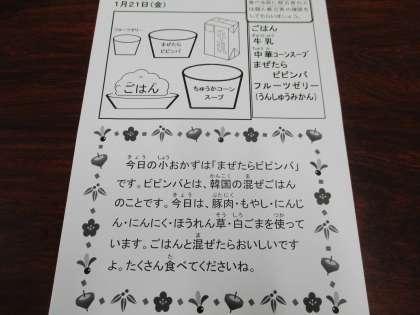 1月21日(金)
フルーツゼリー
まぜたら
ビビンバ
ごはん
ちゅうかコーン
スープ
ごはん
ぎゅうにゅう
牛乳
ちゅうか
中華コーンスープ
まぜたら
ビビンバ
フルーツゼリー
(うんしゅうみかん)
きょう しょう
今日の小おかずは「まぜたらビビンバ」
かんこく ま
です。ビビンバとは、韓国の混ぜごはん
きょう ぶたにく
のことです。今日は、豚肉・もやし・にんじ
そう しろ つか
ん・にんにく・ほうれん草・白ごまを使って
ま
います。ごはんと混ぜたらおいしいです
た
よ。たくさん食べてくださいね。